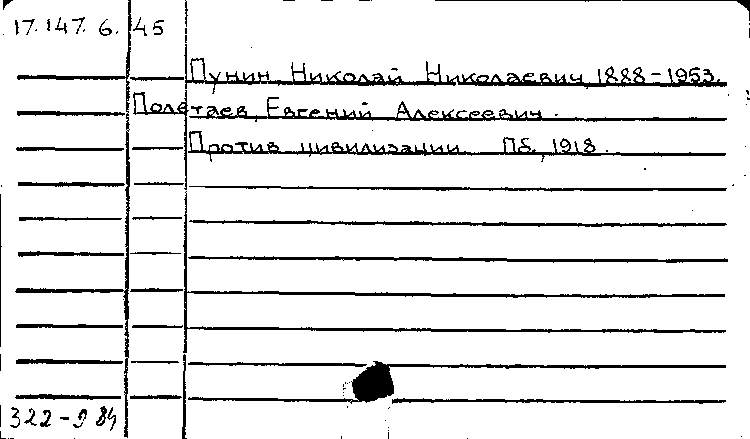 17.147.6.45
Пунин, Николай Николаевич, 1888-1953.
Полетаев, Евгений Алексеевич.
Против цивилизации. Пб., 1918.
322-9 84